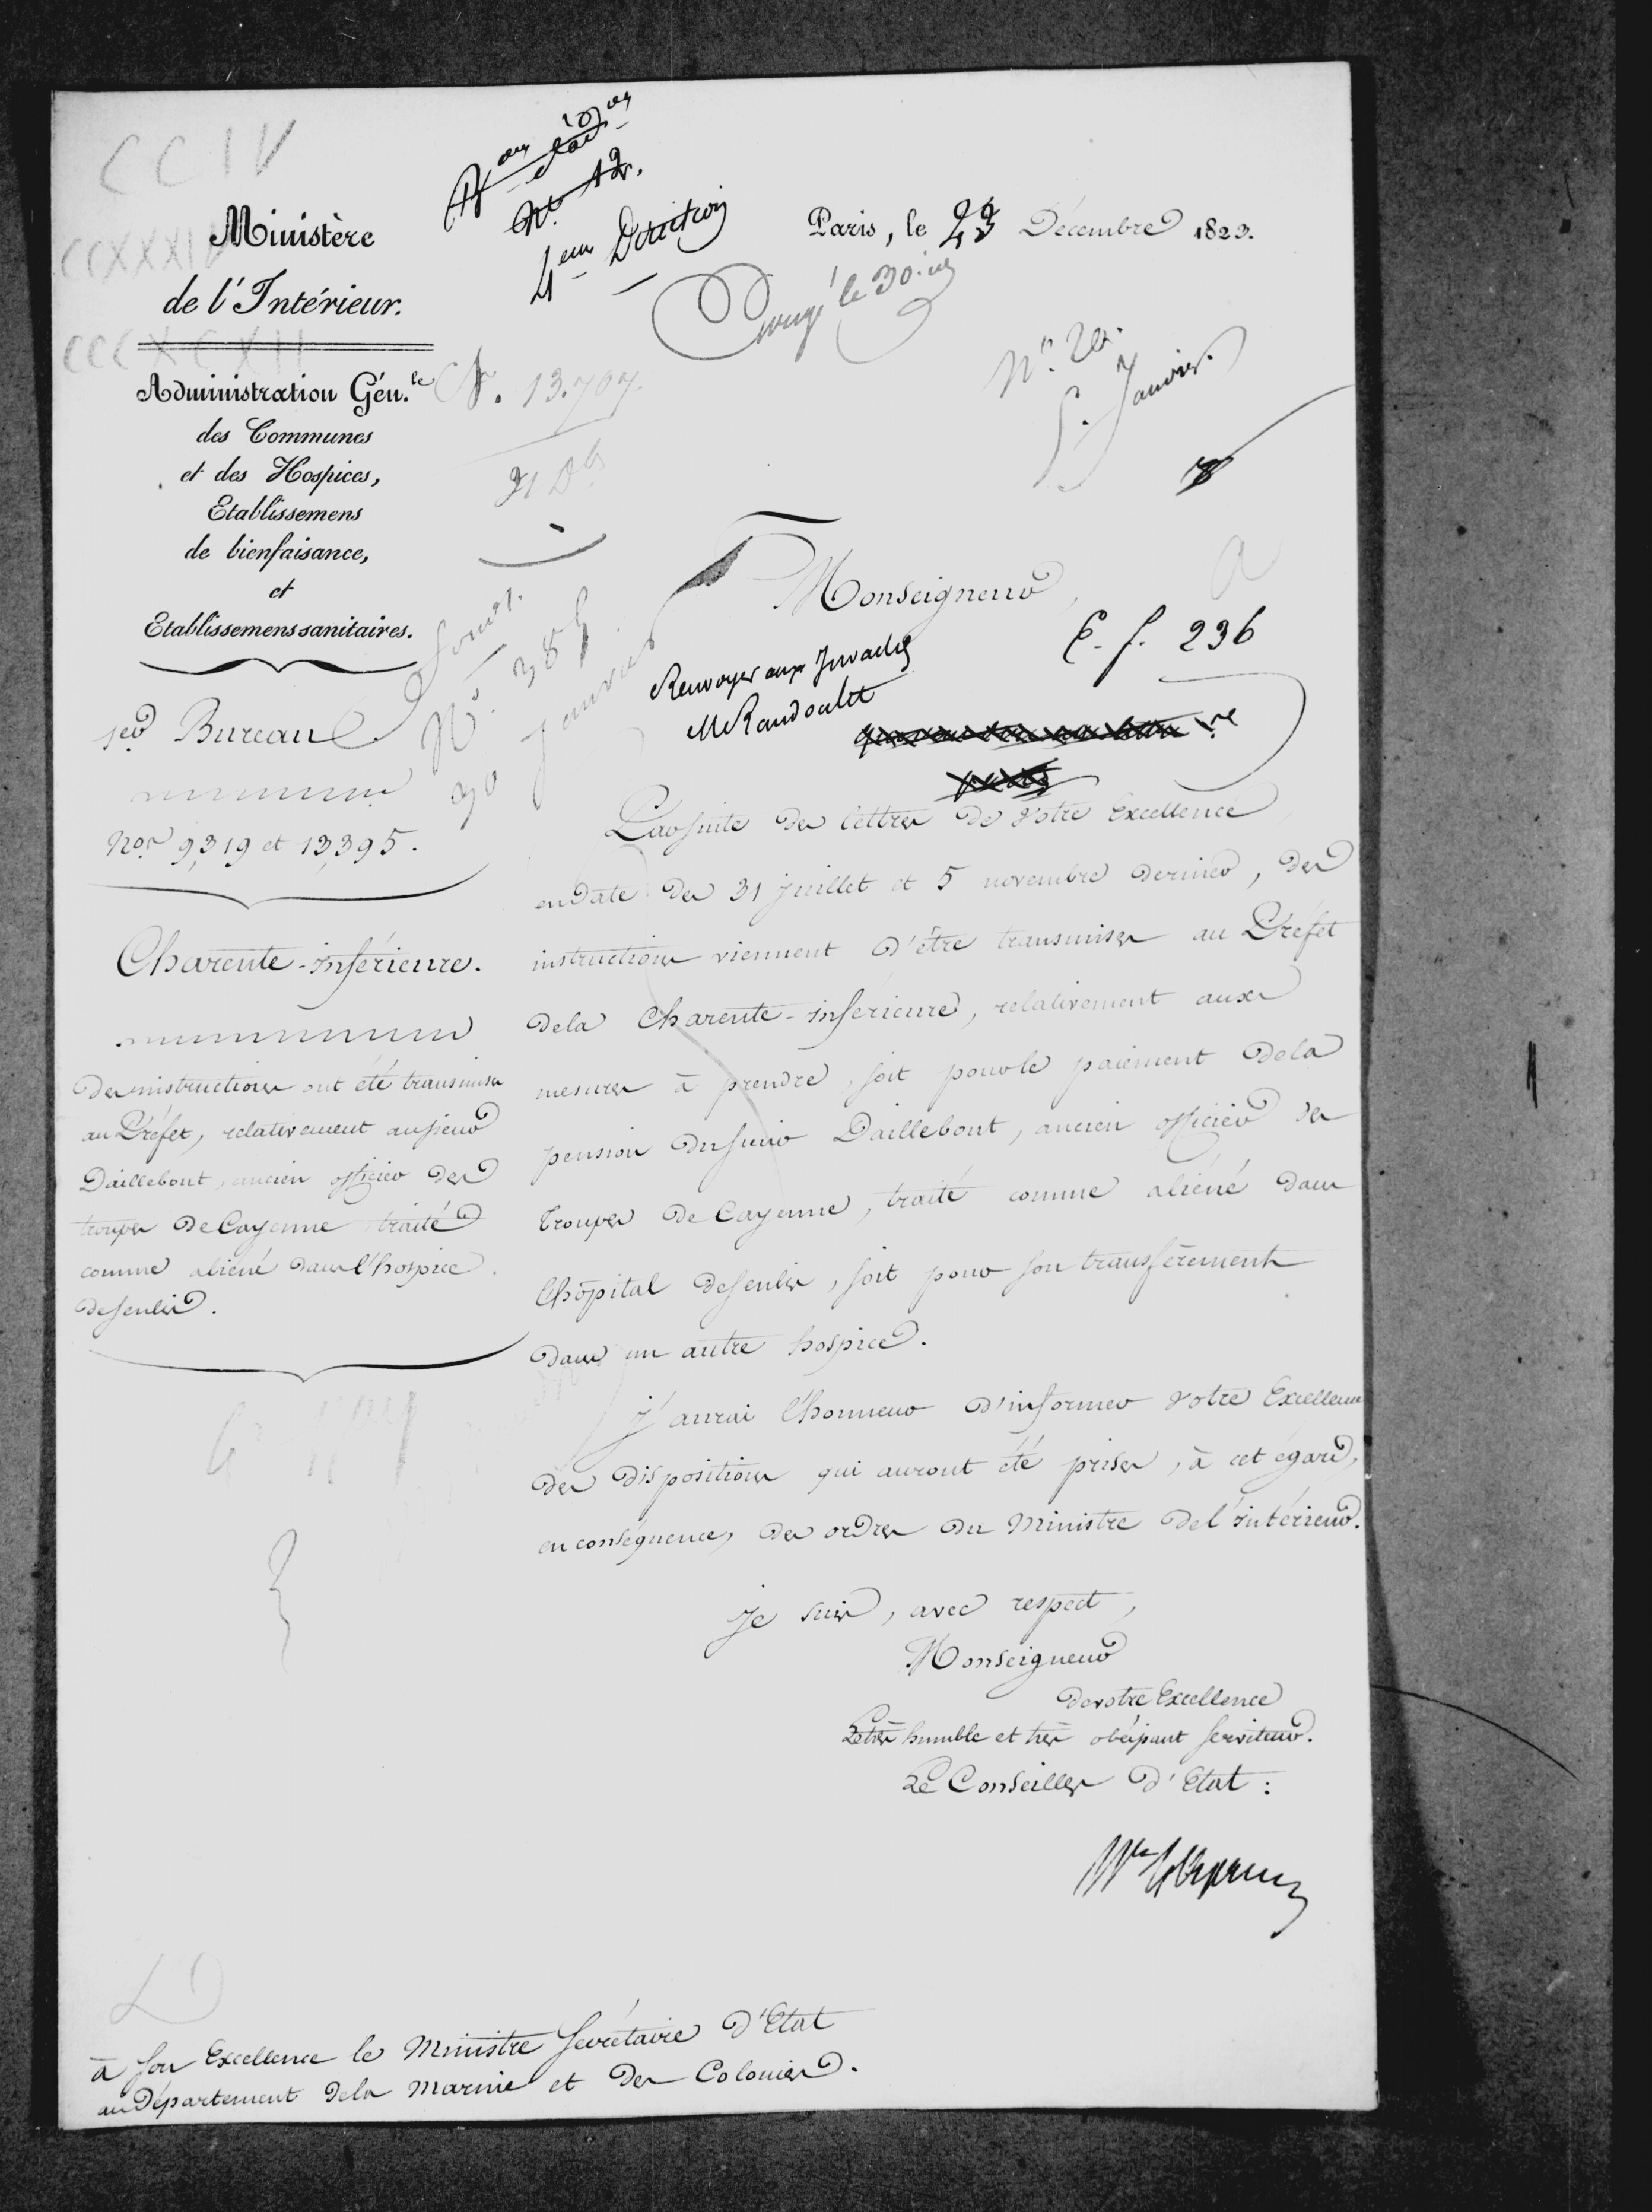 CCIV
CCXXXI
CCCXCXII
Ministère
de l'Intérieur.
Administration Gén.le
des Communes
et des Hospices,
Etablissemens
de bienfaisance,
et
Etablissemens sanitaires.
1er Bureau
Nos 9,319 et 13,395.
Charente-inférieure.
Des instructions ont été transmises
au Préfet, relativement au sieur
Daillebout, ancien officier des
troupes de Cayenne traité
comme aliéné dans l'hospice
de Senlis.
No 12.
4eme Direction
N. 13.707.
21 Dbre
No. 385
30 Janvier
Paris, le 23 Décembre 1823.
le 30
No.
Janvier.
Monseigneur,
E. f. 236
Renvoyer aux Invalides
M Randoulet
La suite des lettres de Votre Excellence
en date des 31 juillet et 5 novembre dernier, des
instructions viennent d'être transmises au Préfet
de la Charente-inférieure, relativement aux
mesures à prendre, soit pour le paiement de la
pension du sieur Daillebout, ancien officier des
troupes de Cayenne, traité comme aliéné dans
l'hôpital de Senlis, soit pour son transfèrement
dans un autre hospice.
J'aurai l'honneur d'informer Votre Excellence
des dispositions qui auront été prises, à cet égard,
en conséquence, des ordres du Ministre de l'intérieur.
Je suis, avec respect,
Monseigneur
de votre Excellence
Le très humble et très obéissant serviteur.
Le Conseiller d'Etat :
à Son Excellence le Ministre Secrétaire d'Etat
au Département de la Marine et des Colonies.